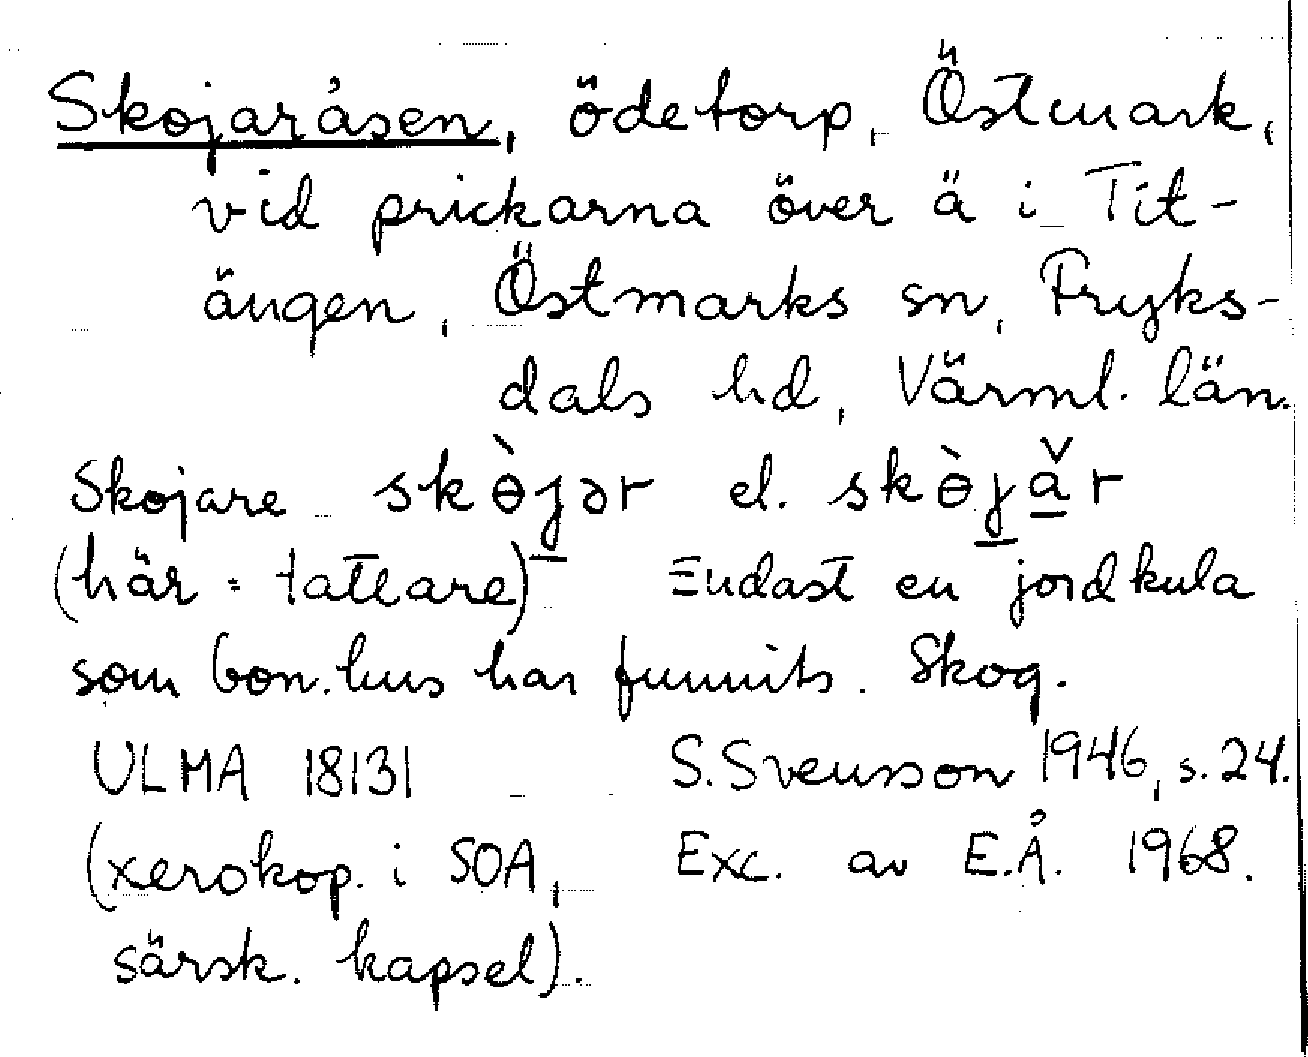 Skojaråsen, ödetorp, Östmark,
vid prickarna över ä i Tit-
ängen, Östmarks sn, Fryks-
dals hd, Värml. län.
Skojare skɵ̀jər el. skɵ̀jǎr
(här = tattare) Endast en jordkula
som bon.hus har funnits. Skog.
ULMA 18131 S. Svensson 1946, s. 24.
(xerokop. i SOA, Exc. av E.Å. 1968.
särsk. kapsel).